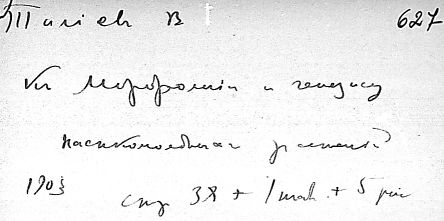 Талiев В 627
Къ морфологiи и генезису
насекомоядных растений
1903 стр 38 + 1 табл. + 5 рис